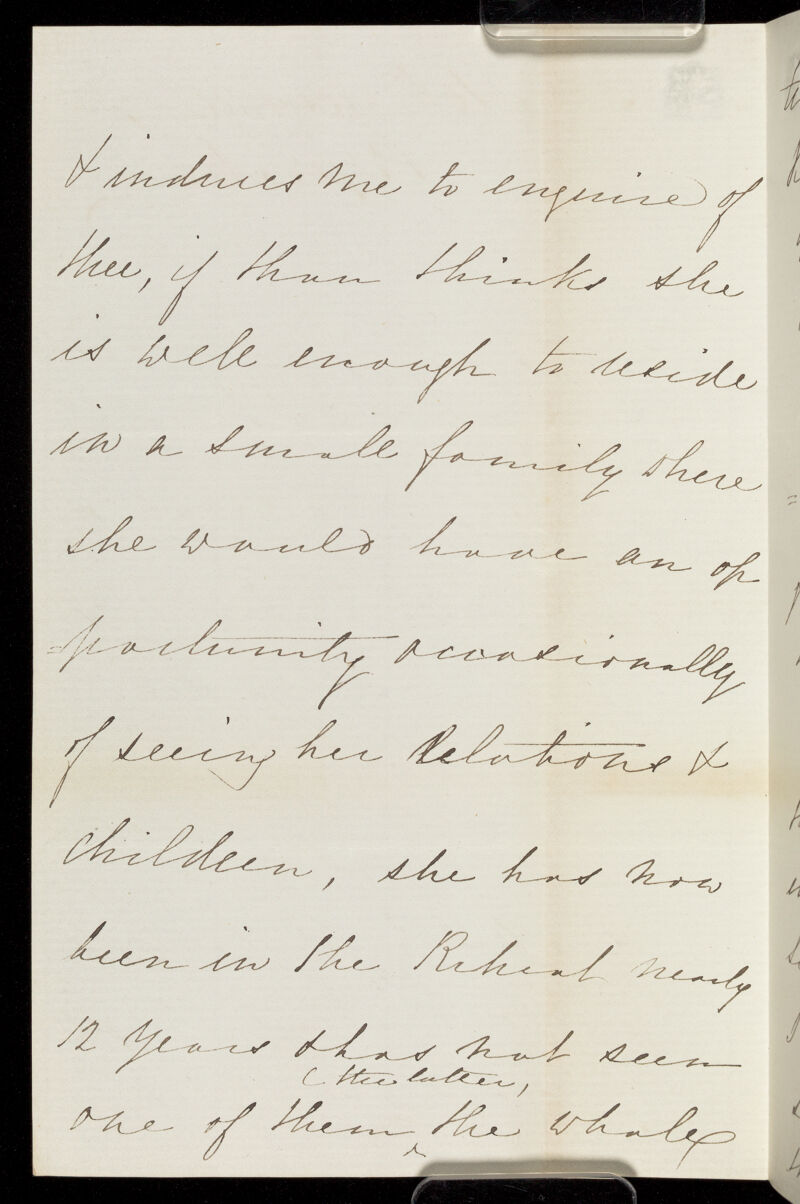 & induces me to enquire of
thee, if thou thinks she
is well enough to reside
in a small family where
she would have an op
=portunity occasionally
of seeing her Relations &
children, she has now
been in the Retreat nearly
12 Years & has not seen
(the latter,
one of them ^ the whole